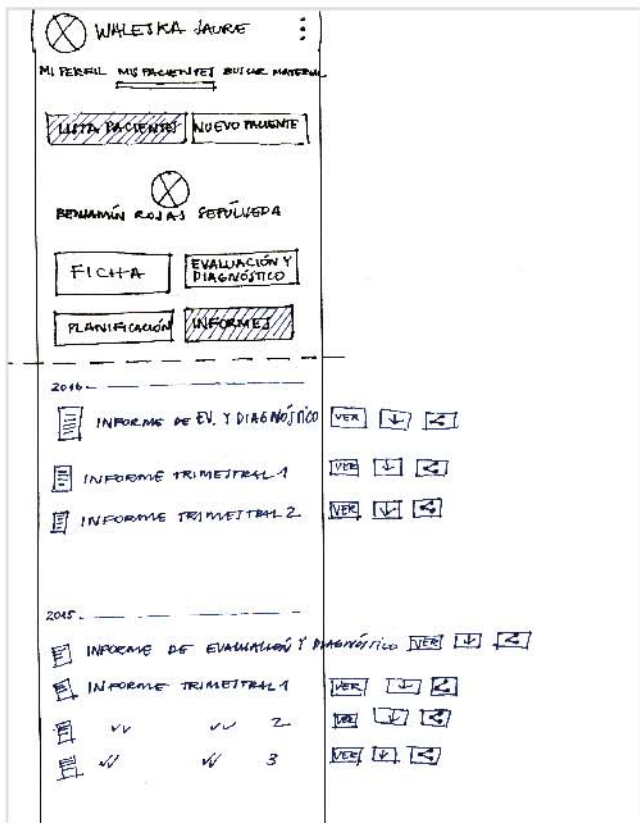 WALESKA JAURE
MI PERFIL MIS PACIENTES BUSCAR MATERIAL
LISTA PACIENTES NUEVO PACIENTE
BENJAMÍN ROJAS SEPÚLVEDA
FICHA EVALUACIÓN Y DIAGNÓSTICO
PLANIFICACIÓN INFORMES
2016.
INFORME DE EV. Y DIAGNÓSTICO VER
INFORME TRIMESTRAL 1 VER
INFORME TRIMESTRAL 2 VER
2015.
INFORME DE EVALUACIÓN Y DIAGNÓSTICO VER
INFORME TRIMESTRAL 1 VER
2 VER
3 VER